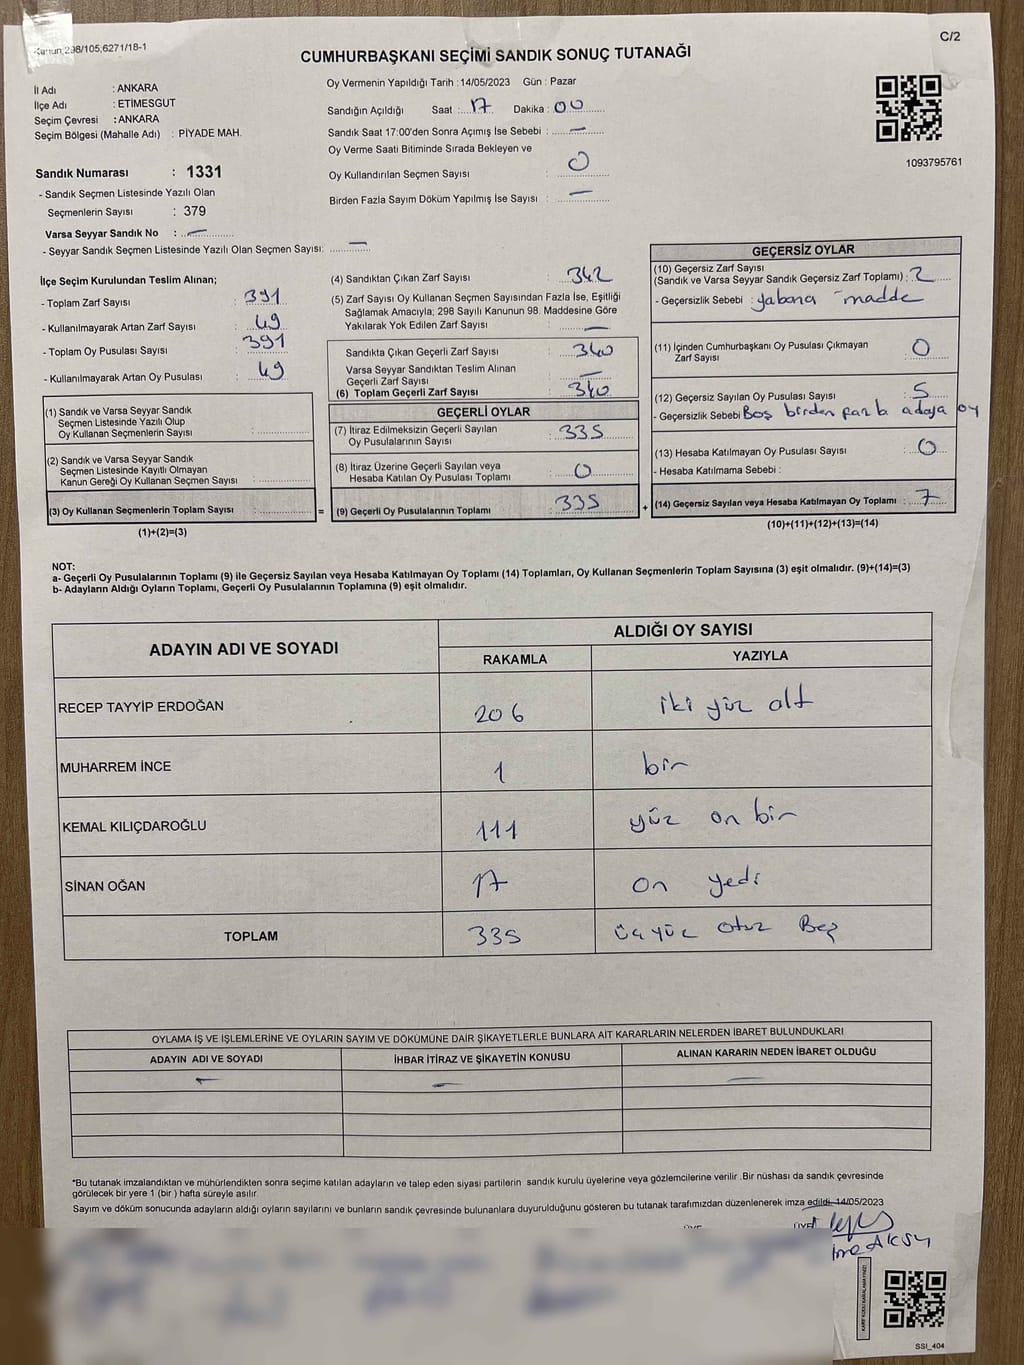 Kanun 298/105;6271/18-1
C/2
CUMHURBAŞKANI SEÇİMİ SANDIK SONUÇ TUTANAĞI
İl Adı : ANKARA
İlçe Adı : ETİMESGUT
Seçim Çevresi : ANKARA
Seçim Bölgesi (Mahalle Adı) : PİYADE MAH.
Oy Vermenin Yapıldığı Tarih :14/05/2023 Gün : Pazar
Sandığın Açıldığı Saat :..17 Dakika : 00
Sandık Saat 17:00'den Sonra Açımış İse Sebebi : —
Oy Verme Saati Bitiminde Sırada Bekleyen ve
Oy Kullandırılan Seçmen Sayısı : 0
Birden Fazla Sayım Döküm Yapılmış İse Sayısı : —
1093795761
Sandık Numarası : 1331
- Sandık Seçmen Listesinde Yazılı Olan
Seçmenlerin Sayısı : 379
Varsa Seyyar Sandık No : —
- Seyyar Sandık Seçmen Listesinde Yazılı Olan Seçmen Sayısı: —
İlçe Seçim Kurulundan Teslim Alınan;
- Toplam Zarf Sayısı : 391
- Kullanılmayarak Artan Zarf Sayısı : 49
- Toplam Oy Pusulası Sayısı : 391
- Kullanılmayarak Artan Oy Pusulası : 49
(1) Sandık ve Varsa Seyyar Sandık
Seçmen Listesinde Yazılı Olup
Oy Kullanan Seçmenlerin Sayısı :
(2) Sandık ve Varsa Seyyar Sandık
Seçmen Listesinde Kayıtlı Olmayan
Kanun Gereği Oy Kullanan Seçmen Sayısı :
(3) Oy Kullanan Seçmenlerin Toplam Sayısı :
(1)+(2)=(3)
=
(4) Sandıktan Çıkan Zarf Sayısı : 342
(5) Zarf Sayısı Oy Kullanan Seçmen Sayısından Fazla İse, Eşitliği
Sağlamak Amacıyla; 298 Sayılı Kanunun 98. Maddesine Göre
Yakılarak Yok Edilen Zarf Sayısı : —
Sandıkta Çıkan Geçerli Zarf Sayısı : 340
Varsa Seyyar Sandıktan Teslim Alınan
Geçerli Zarf Sayısı : —
(6) Toplam Geçerli Zarf Sayısı : 340
GEÇERLİ OYLAR
(7) İtiraz Edilmeksizin Geçerli Sayılan
Oy Pusulalarının Sayısı : 335
(8) İtiraz Üzerine Geçerli Sayılan veya
Hesaba Katılan Oy Pusulası Toplamı : 0
(9) Geçerli Oy Pusulalarının Toplamı : 335
+
GEÇERSİZ OYLAR
(10) Geçersiz Zarf Sayısı
(Sandık ve Varsa Seyyar Sandık Geçersiz Zarf Toplamı) : 2
- Geçersizlik Sebebi : yabancı madde
(11) İçinden Cumhurbaşkanı Oy Pusulası Çıkmayan
Zarf Sayısı : 0
(12) Geçersiz Sayılan Oy Pusulası Sayısı : 5
- Geçersizlik Sebebi Boş birden fazla adaya oy
(13) Hesaba Katılmayan Oy Pusulası Sayısı : 0
- Hesaba Katılmama Sebebi :
(14) Geçersiz Sayılan veya Hesaba Katılmayan Oy Toplamı : 7
(10)+(11)+(12)+(13)=(14)
NOT:
a- Geçerli Oy Pusulalarının Toplamı (9) ile Geçersiz Sayılan veya Hesaba Katılmayan Oy Toplamı (14) Toplamları, Oy Kullanan Seçmenlerin Toplam Sayısına (3) eşit olmalıdır. (9)+(14)=(3)
b- Adayların Aldığı Oyların Toplamı, Geçerli Oy Pusulalarının Toplamına (9) eşit olmalıdır.
ADAYIN ADI VE SOYADI
ALDIĞI OY SAYISI
RAKAMLA YAZIYLA
RECEP TAYYİP ERDOĞAN 206 iki yüz altı
MUHARREM İNCE 1 bir
KEMAL KILIÇDAROĞLU 111 yüz on bir
SİNAN OĞAN 17 on yedi
TOPLAM 335 üç yüz otuz Beş
OYLAMA İŞ VE İŞLEMLERİNE VE OYLARIN SAYIM VE DÖKÜMÜNE DAİR ŞİKAYETLERLE BUNLARA AİT KARARLARIN NELERDEN İBARET BULUNDUKLARI
ADAYIN ADI VE SOYADI İHBAR İTİRAZ VE ŞİKAYETİN KONUSU ALINAN KARARIN NEDEN İBARET OLDUĞU
— — —
*Bu tutanak imzalandıktan ve mühürlendikten sonra seçime katılan adayların ve talep eden siyasi partilerin sandık kurulu üyelerine veya gözlemcilerine verilir. Bir nüshası da sandık çevresinde
görülecek bir yere 1 (bir ) hafta süreyle asılır.
Sayım ve döküm sonucunda adayların aldığı oyların sayılarını ve bunların sandık çevresinde bulunanlara duyurulduğunu gösteren bu tutanak tarafımızdan düzenlenerek imza edildi. 14/05/2023
AKSU
SSI_404